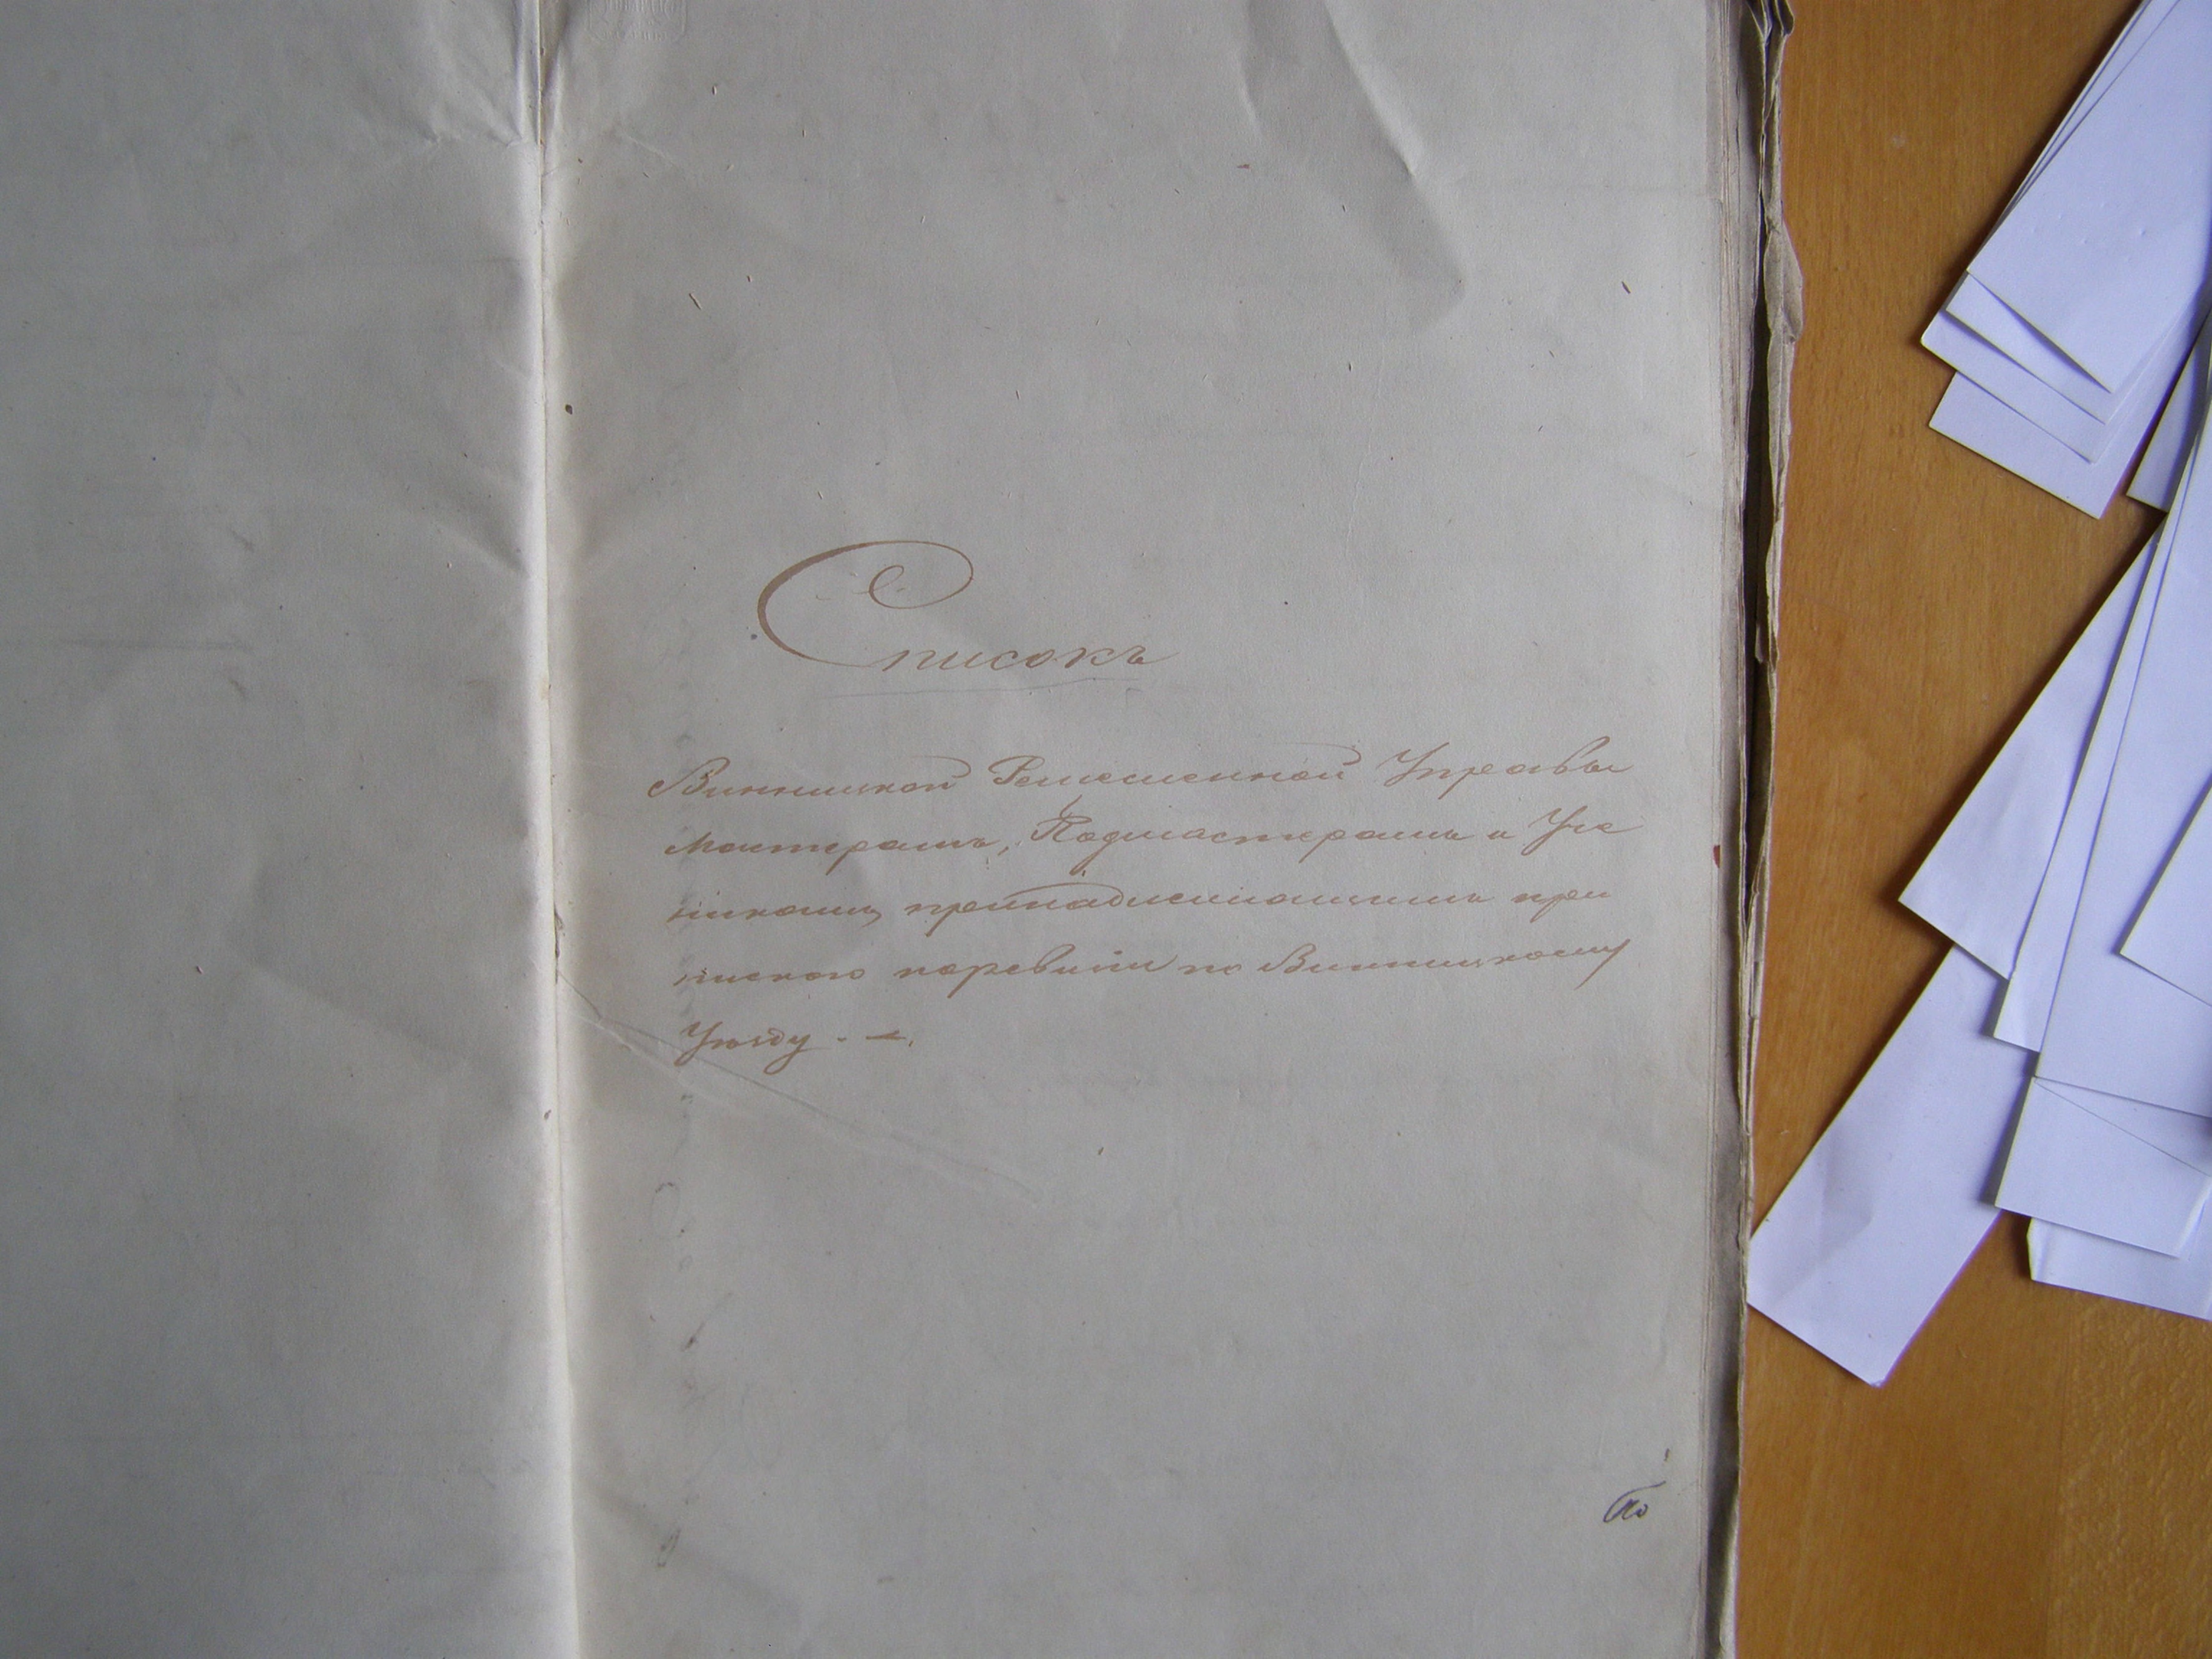 Списокъ
Винницкой Ремесленной Управы
Мастерамъ, Подмастерамъ и Уче
никамъ, принадлежащимъ при
пискою по ревизіи по Винницкому
Уѣзду. —
По